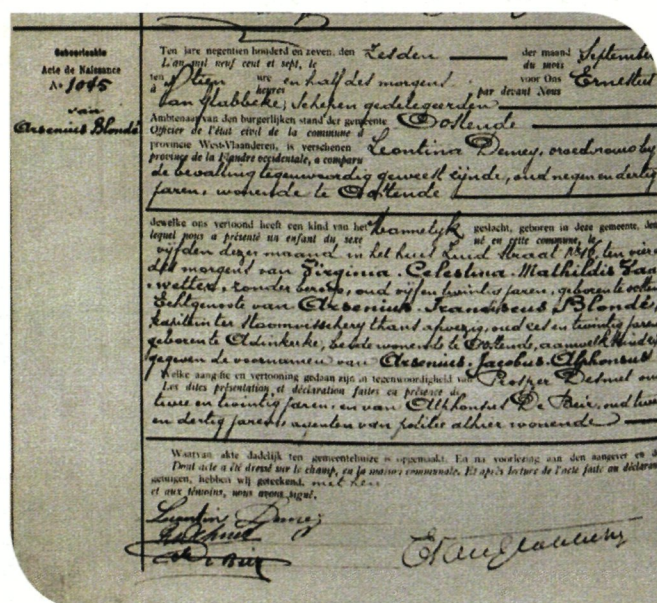 Geboorteakte
Acte de Naissance
N° 1045
van
Arsenius Blondé
Ten jare negentien honderd en zeven, den Zesden der maand September
L'an mil neuf cent et sept, le du mois
ten Tien ure en half des morgens voor Ons Ernestus
à heures par devant Nous
van Glabbeke, schepen gedelegeerden
Ambtenaar van den burgerlijken stand der gemeente Oostende
Officier de l'état civil de la commune à
provincie West-Vlaanderen, is verschenen Leontina Demey, vroedvrouw by
province de la Flandre occidentale, a comparu
de bevalling tegenwoordig geweest zijnde, oud negen en dertig
jaren, wonende te Oostende
dewelke ons vertoond heeft een kind van het Mannelyk geslacht, geboren in deze gemeente, den
lequel nous a présenté un enfant du sexe né en cette commune, le
vijfden dezer maand in het huis Zuid Straat N° ten vier
des morgens van Virginia Celestina Mathildis
zonder beroep, oud vijf en twintig jaren, geboren te
Echtgenoote van Arsenius Franciscus Blondé,
Kapitein ter Stoomvisschery thans afwezig, oud zes en twintig jaren
geboren te Adinkerke, beide wonende te Oostende, aan welk kind
gegeven de voornamen van Arsenius Jacobus Alphonsus
Welke aangifte en vertooning gedaan zijn in tegenwoordigheid van Prosper Desmet oud
Les dites présentation et déclaration faites en présence de
twee en twintig jaren, en van Alphonsus De Beir, oud twee
en dertig jaren, agenten van politie alhier wonende
Waarvan akte dadelijk ten gemeentehuize is opgemaakt. En na voorlezing aan den aangever en d
Dont acte a été dressé sur le champ, en la maison communale. Et après lecture de l'acte faite au déclaran
getuigen, hebben wij geteekend, met hen
et aux témoins, nous avons signé.
Leontin Demey
De Beir